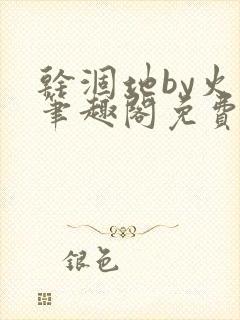 馀涸地by火
笔趣阁免费
银色